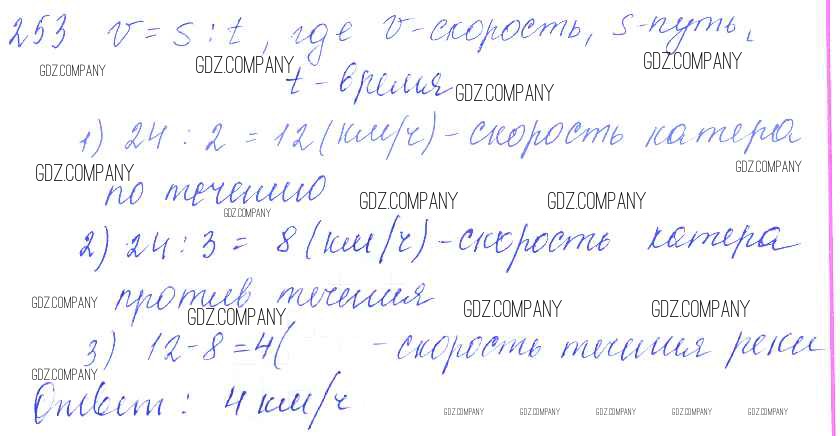 253 v = s : t, где v - скорость, s - путь,
GDZ.COMPANY GDZ.COMPANY GDZ.COMPANY
t - время GDZ.COMPANY
1) 24 : 2 = 12 (км/ч) - скорость катера
GDZ.COMPANY GDZ.COMPANY
по течению GDZ.COMPANY GDZ.COMPANY
GDZ.COMPANY
2) 24 : 3 = 8 (км/ч) - скорость катера
GDZ.COMPANY против течения GDZ.COMPANY GDZ.COMPANY
GDZ.COMPANY
3) 12 - 8 = 4 ( - скорость течения реки
GDZ.COMPANY
Ответ: 4 км/ч
GDZ.COMPANY GDZ.COMPANY GDZ.COMPANY GDZ.COMPANY GDZ.COMPANY